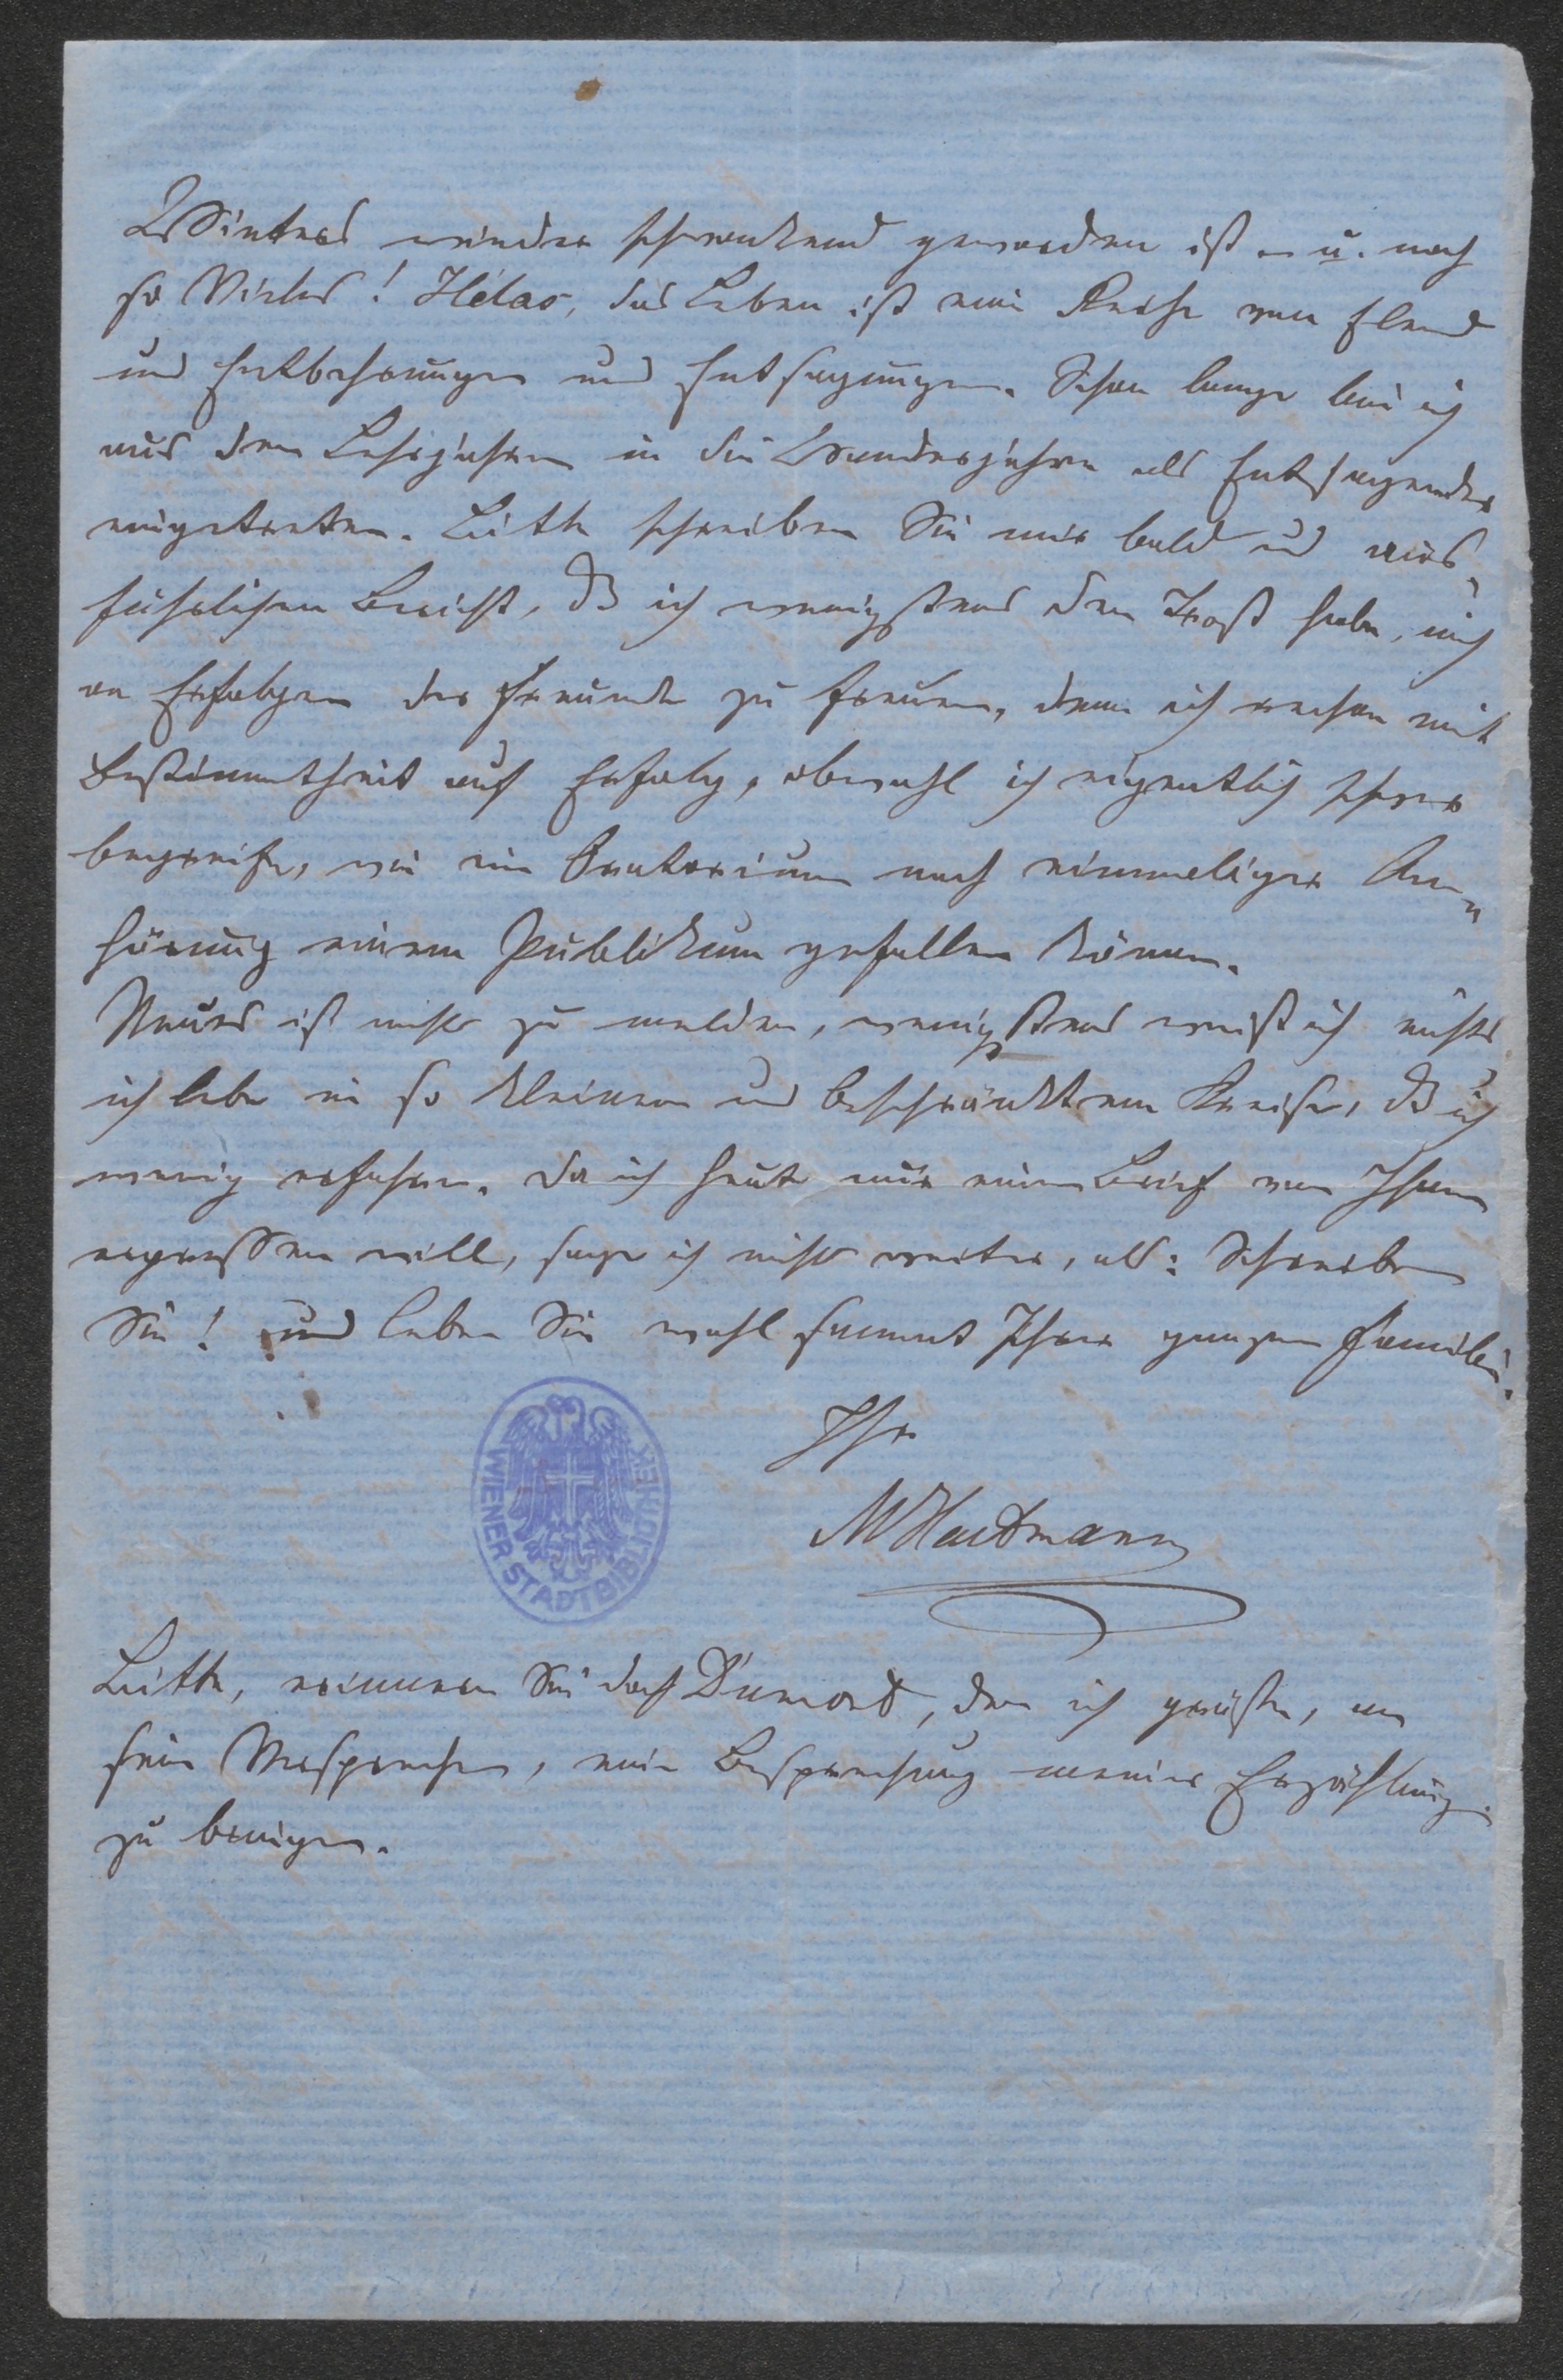 Winters wieder schwankend geworden ist – u. noch
so Vieles! Hélas, das Leben ist eine Reihe von Elend
und Entbehrungen und Entsagungen. Schon lange bin ich
aus den Lehrjahren in die Wanderjahre als Entsagender
eingetreten. Bitte schreiben Sie mir bald und aus-
führlichen Bericht, dß ich wenigstens den Trost habe, mich
an Erfolgen der Freunde zu freuen, denn ich rechne mit
Bestimmtheit auf Erfolg, obwohl ich eigentlich schwer
begreife, wie ein Oratorium nach einmaliger An-
hörung einem Publikum gefallen könne.
Neues ist nichts zu melden, wenigstens weiß ich nichts
ich lebe in so kleinem und beschränktem Kreise, dß ich
wenig erfahre. Da ich heute nur einen Brief von Ihnen
erpressen will, sage ich nichts weiter, als: Schreiben
Sie! und leben Sie wohl sammt Ihrer ganzen Familie.
Ihr
MHartmann
WIENER STADTBIBLIOTHEK
Bitte, erinnern Sie doch Dumont, den ich grüße, an
sein Versprechen, eine Besprechung meiner Erzählung.
zu bringen.